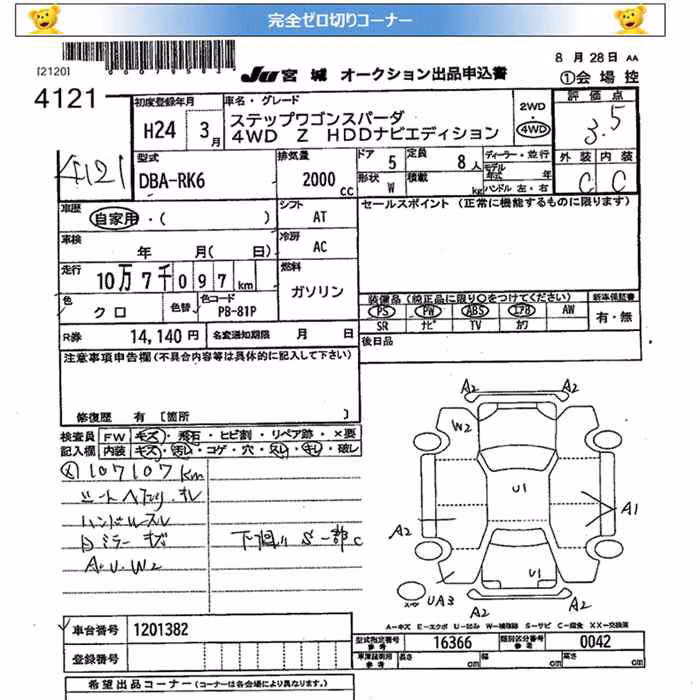 完全ゼロ切りコーナー
[2120] 00079583 JU宮城 オークション出品申込書 8月28日 AA
①会場控
4121 初度登録年月 H24 3月 車名・グレード ステップワゴンスパーダ 4WD Z HDDナビエディション 2WD・4WD 評価点 3.5
4121 型式 DBA-RK6 排気量 2000cc ドア 5 定員 8人 形状 W 積載 kg ディーラー・並行 モデル年式 年 ハンドル 左・右 外装 C 内装 C
車歴 自家用・( ) シフト AT セールスポイント (正常に機能するものに限ります)
車検 年 月( 日) 冷房 AC
走行 10万7千097km 燃料 ガソリン
色 クロ 色替 色コード PB-81P 装備品 (純正品に限り○をつけてください) 新車保証書
PS PW ABS エアB AW 有・無
SR ナビ TV カワ
R券 14,140円 名変通知期限 月 日 後日品
注意事項申告欄 (不具合内容等は具体的に記入して下さい)
修復歴 有 [箇所 ]
検査員 FW キズ・飛石・ヒビ割・リペア跡・×要
記入欄 内装 キズ・汚レ・コゲ・穴・スレ・キレ・破レ
107107km
シートヘタリ・キレ
ハンドルスレ
Dミラーキズ 下廻りS 一部C
A・U・W2
A2 A2
W2
U1
A2 A1
U1
UA3 A2 A2
A-キズ E-エクボ U-凹み W-補修跡 S-サビ C-腐食 XX-交換済
車台番号 1201382
型式指定番号 参考 16366 類別区分番号 参考 0042
登録番号
車庫証明用 参考 長さ cm 幅 cm 高さ cm
希望出品コーナー (コーナーは各会場により異なります。)